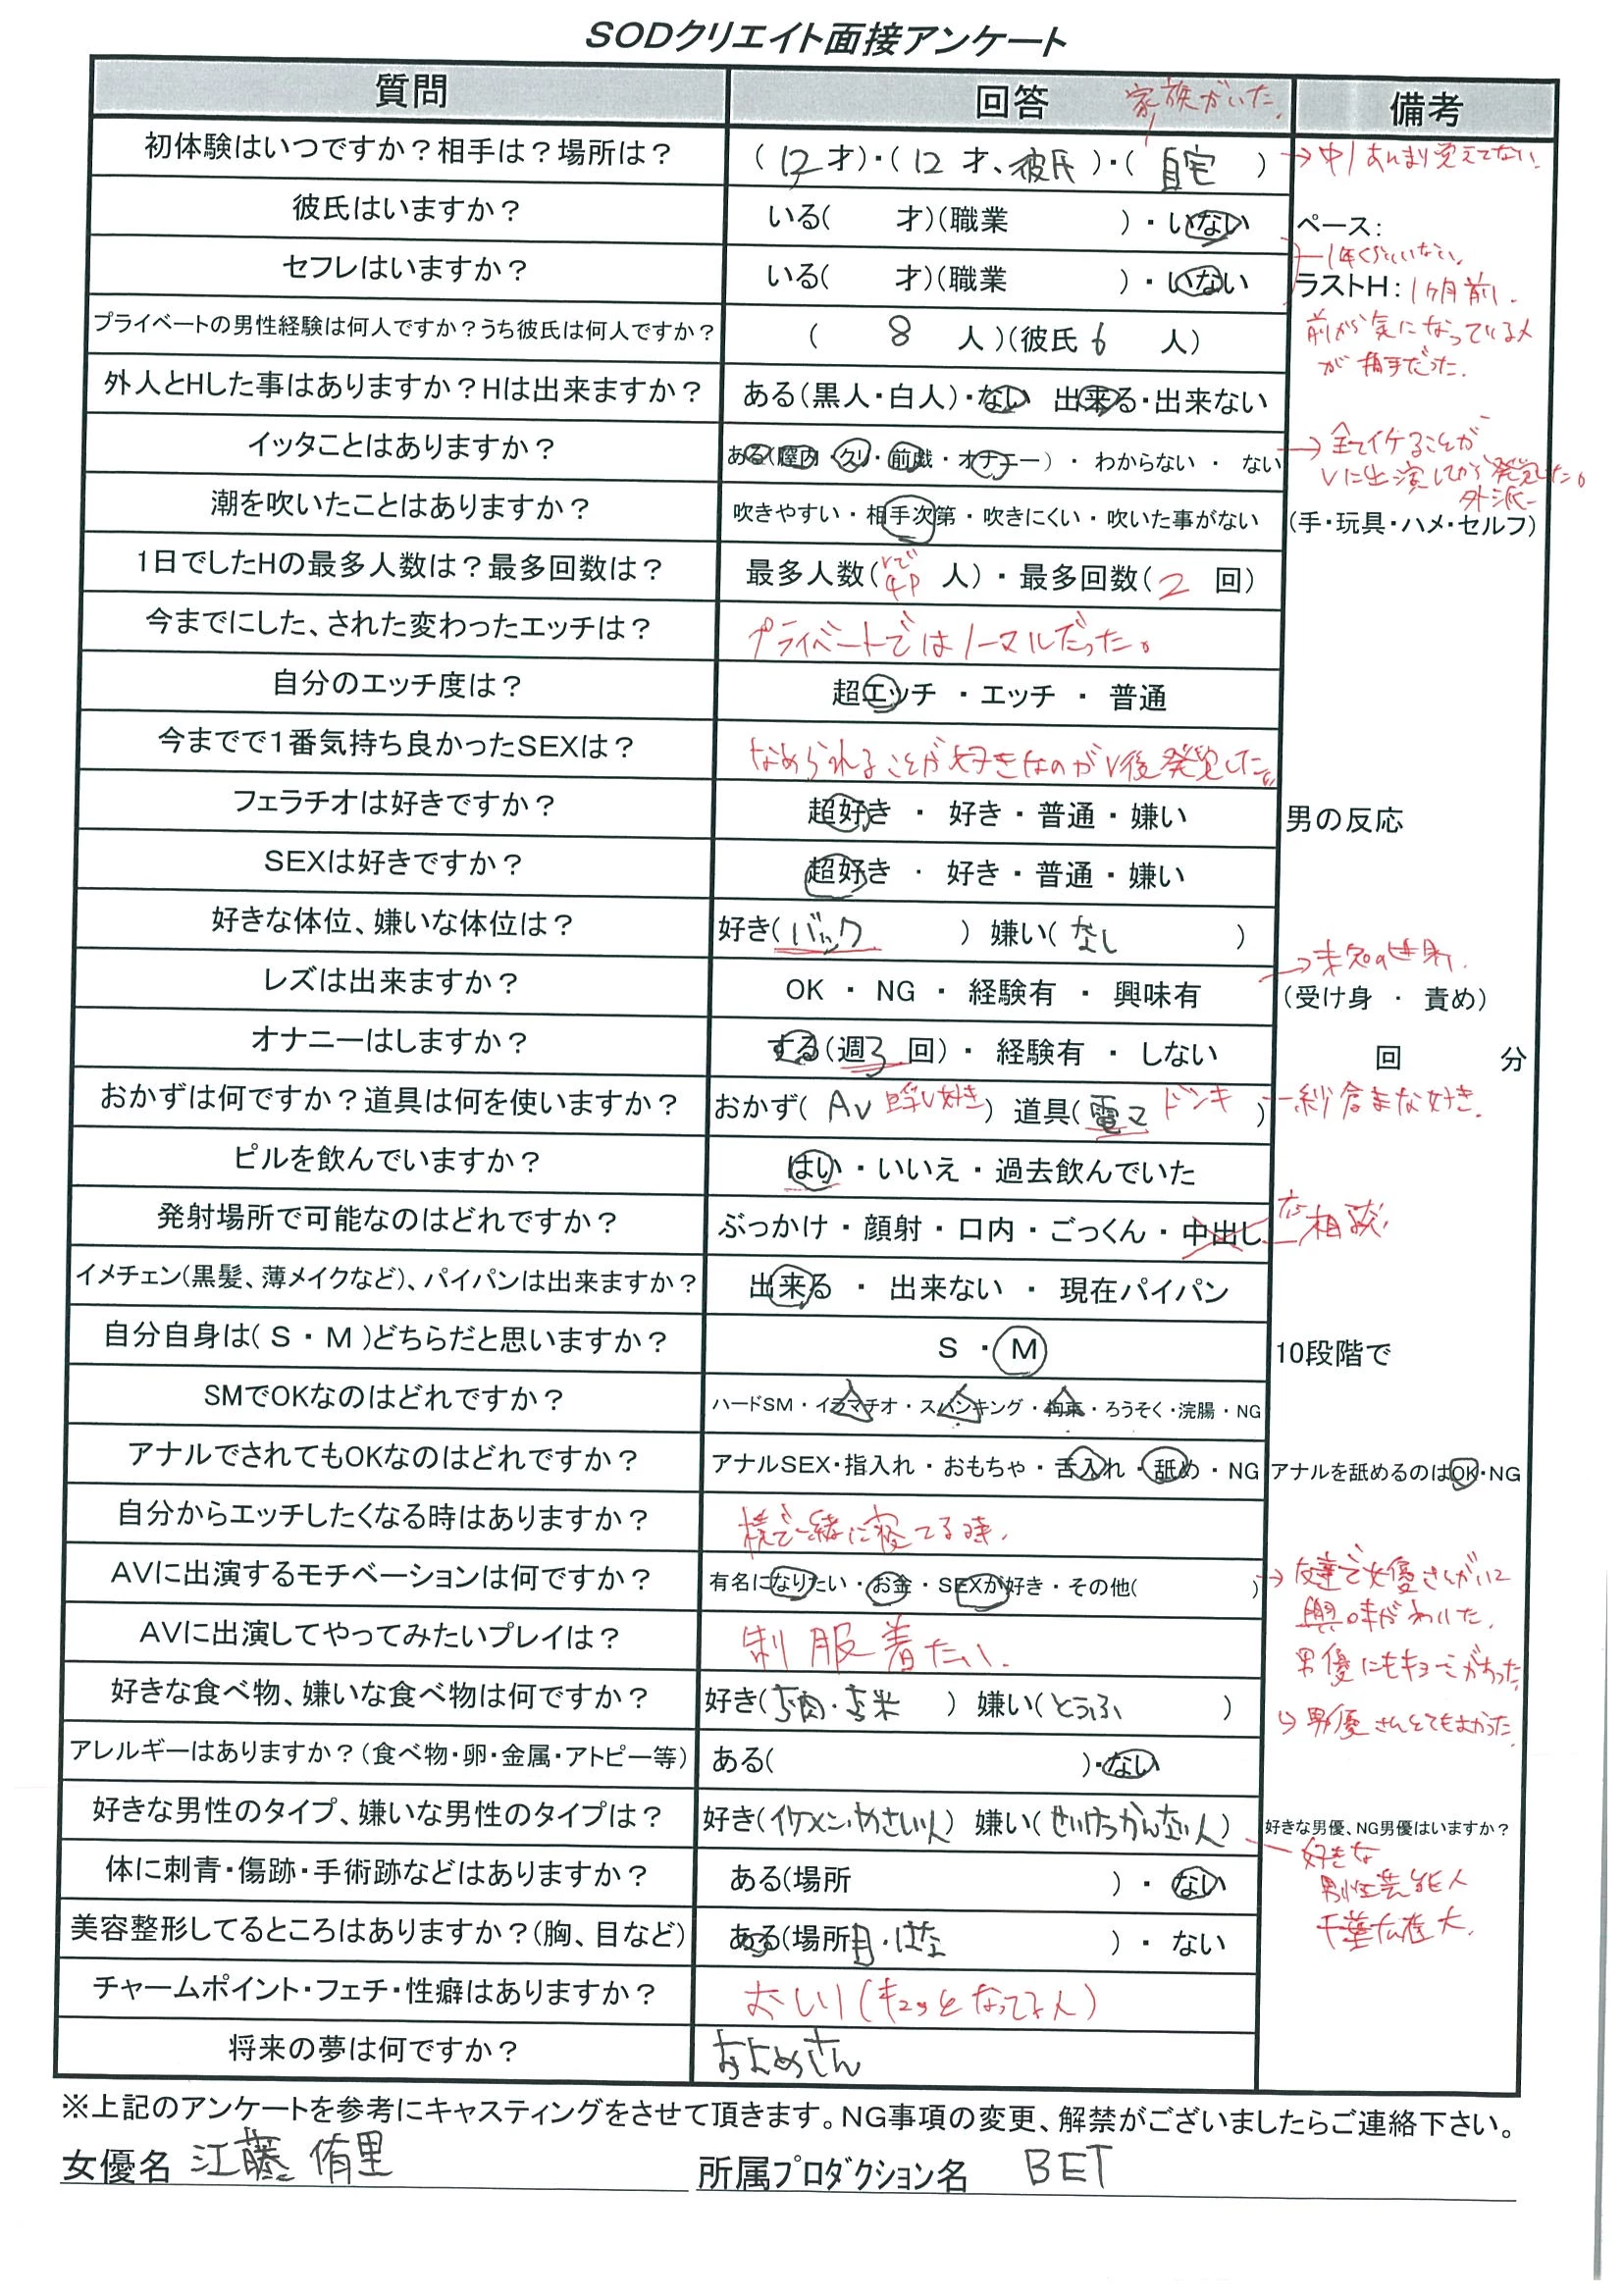 SODクリエイト面接アンケート
質問 回答 備考
彼氏はいますか? いる( 才)(職業 )・いない ペース:
セフレはいますか? いる( 才)(職業 )・いない ラストH:1ヶ月前。
前から気になっている人
が相手だった。
プライベートの男性経験は何人ですか?うち彼氏は何人ですか? ( 8 人)(彼氏 6 人)
外人とHした事はありますか?Hは出来ますか? ある(黒人・白人)・ない 出来る・出来ない
イッタことはありますか? ある(膣内・クリ・前戯・オナニー)・ わからない ・ ない
→全てイケることが
Vに出演してから発覚した。
外派
潮を吹いたことはありますか? 吹きやすい・相手次第・吹きにくい・吹いた事がない (手・玩具・ハメ・セルフ)
1日でしたHの最多人数は?最多回数は? 最多人数(Vで4P 人)・最多回数(2 回)
今までにした、された変わったエッチは? プライベートではノーマルだった。
自分のエッチ度は? 超エッチ ・ エッチ ・ 普通
今までで1番気持ち良かったSEXは? なめられることが好きなのがV後発覚した。
フェラチオは好きですか? 超好き ・ 好き・普通・嫌い 男の反応
SEXは好きですか? 超好き ・ 好き・普通・嫌い
好きな体位、嫌いな体位は? 好き(バック) 嫌い(なし)
レズは出来ますか? OK ・ NG ・ 経験有 ・ 興味有 →未知の世界。
(受け身 ・ 責め)
オナニーはしますか? する(週3 回)・ 経験有 ・ しない 回 分
おかずは何ですか?道具は何を使いますか? おかず(AV) 道具(電マ ドンキ) 紗倉まな好き。
ピルを飲んでいますか? はい・いいえ・過去飲んでいた
発射場所で可能なのはどれですか? ぶっかけ・顔射・口内・ごっくん・中出し 相談
イメチェン(黒髪、薄メイクなど)、パイパンは出来ますか? 出来る ・ 出来ない ・ 現在パイパン
自分自身は( S ・ M )どちらだと思いますか? S ・ M 10段階で
SMでOKなのはどれですか? ハードSM・イラマチオ・スパンキング・拘束・ろうそく・浣腸・NG
アナルでされてもOKなのはどれですか? アナルSEX・指入れ・おもちゃ・舌入れ・舐め・NG アナルを舐めるのはOK・NG
自分からエッチしたくなる時はありますか? 横で一緒に寝てる時。
AVに出演するモチベーションは何ですか? 有名になりたい・お金・SEXが好き・その他( )
→友達で女優さんがいて
興味がわいた。
男優にもキョーミがあった
↳男優さんとてもよかった
AVに出演してやってみたいプレイは? 制服着たい。
好きな食べ物、嫌いな食べ物は何ですか? 好き(お肉・お米) 嫌い(とうふ)
アレルギーはありますか?(食べ物・卵・金属・アトピー等) ある( )・ない
好きな男性のタイプ、嫌いな男性のタイプは? 好き(イケメン・やさしい人) 嫌い(せいけつかんない人) 好きな男優、NG男優はいますか?
好きな
男性芸能人
千葉雄大。
体に刺青・傷跡・手術跡などはありますか? ある(場所 )・ ない
美容整形してるところはありますか?(胸、目など) ある(場所 目・はな )・ ない
チャームポイント・フェチ・性癖はありますか? おしり(キュッとなってる人)
将来の夢は何ですか? およめさん
※上記のアンケートを参考にキャスティングをさせて頂きます。NG事項の変更、解禁がございましたらご連絡下さい。
女優名 江藤侑里 所属プロダクション名 BET